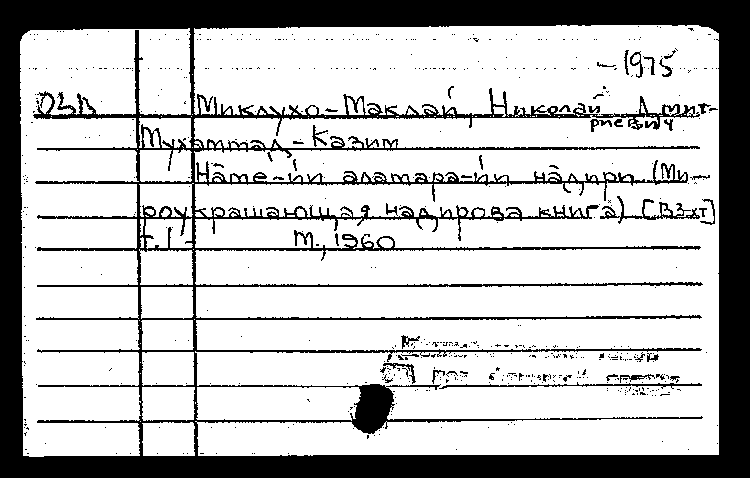 -1975
ОЗВ Миклухо-Маклай, Николай Дмит-
риевич
Мухаммад-Казим
Нāме-йи аламара-йи нāдири (Ми-
роукрашающая надирова книга) [В 3-х т]
т.1- М., 1960